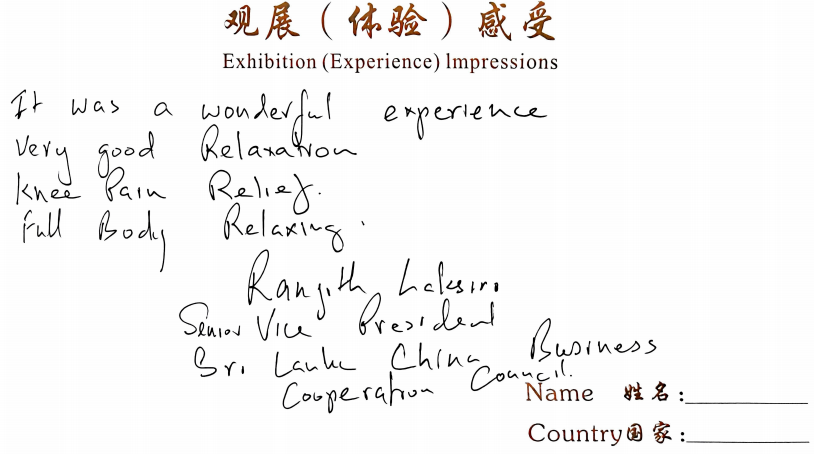 观展（体验）感受
Exhibition (Experience) Impressions
It was a wonderful experience
Very good Relaxation
Knee Pain Relief.
Full Body Relaxing.
Ranjith Laksiri
Senior Vice President
Sri Lanka China Business
Cooperation Council.
Name 姓名:
Country国家: